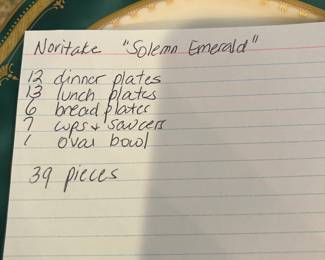 Noritake "Solemn Emerald"
12 dinner plates
13 lunch plates
6 bread plates
7 cups & saucers
1 oval bowl
39 pieces